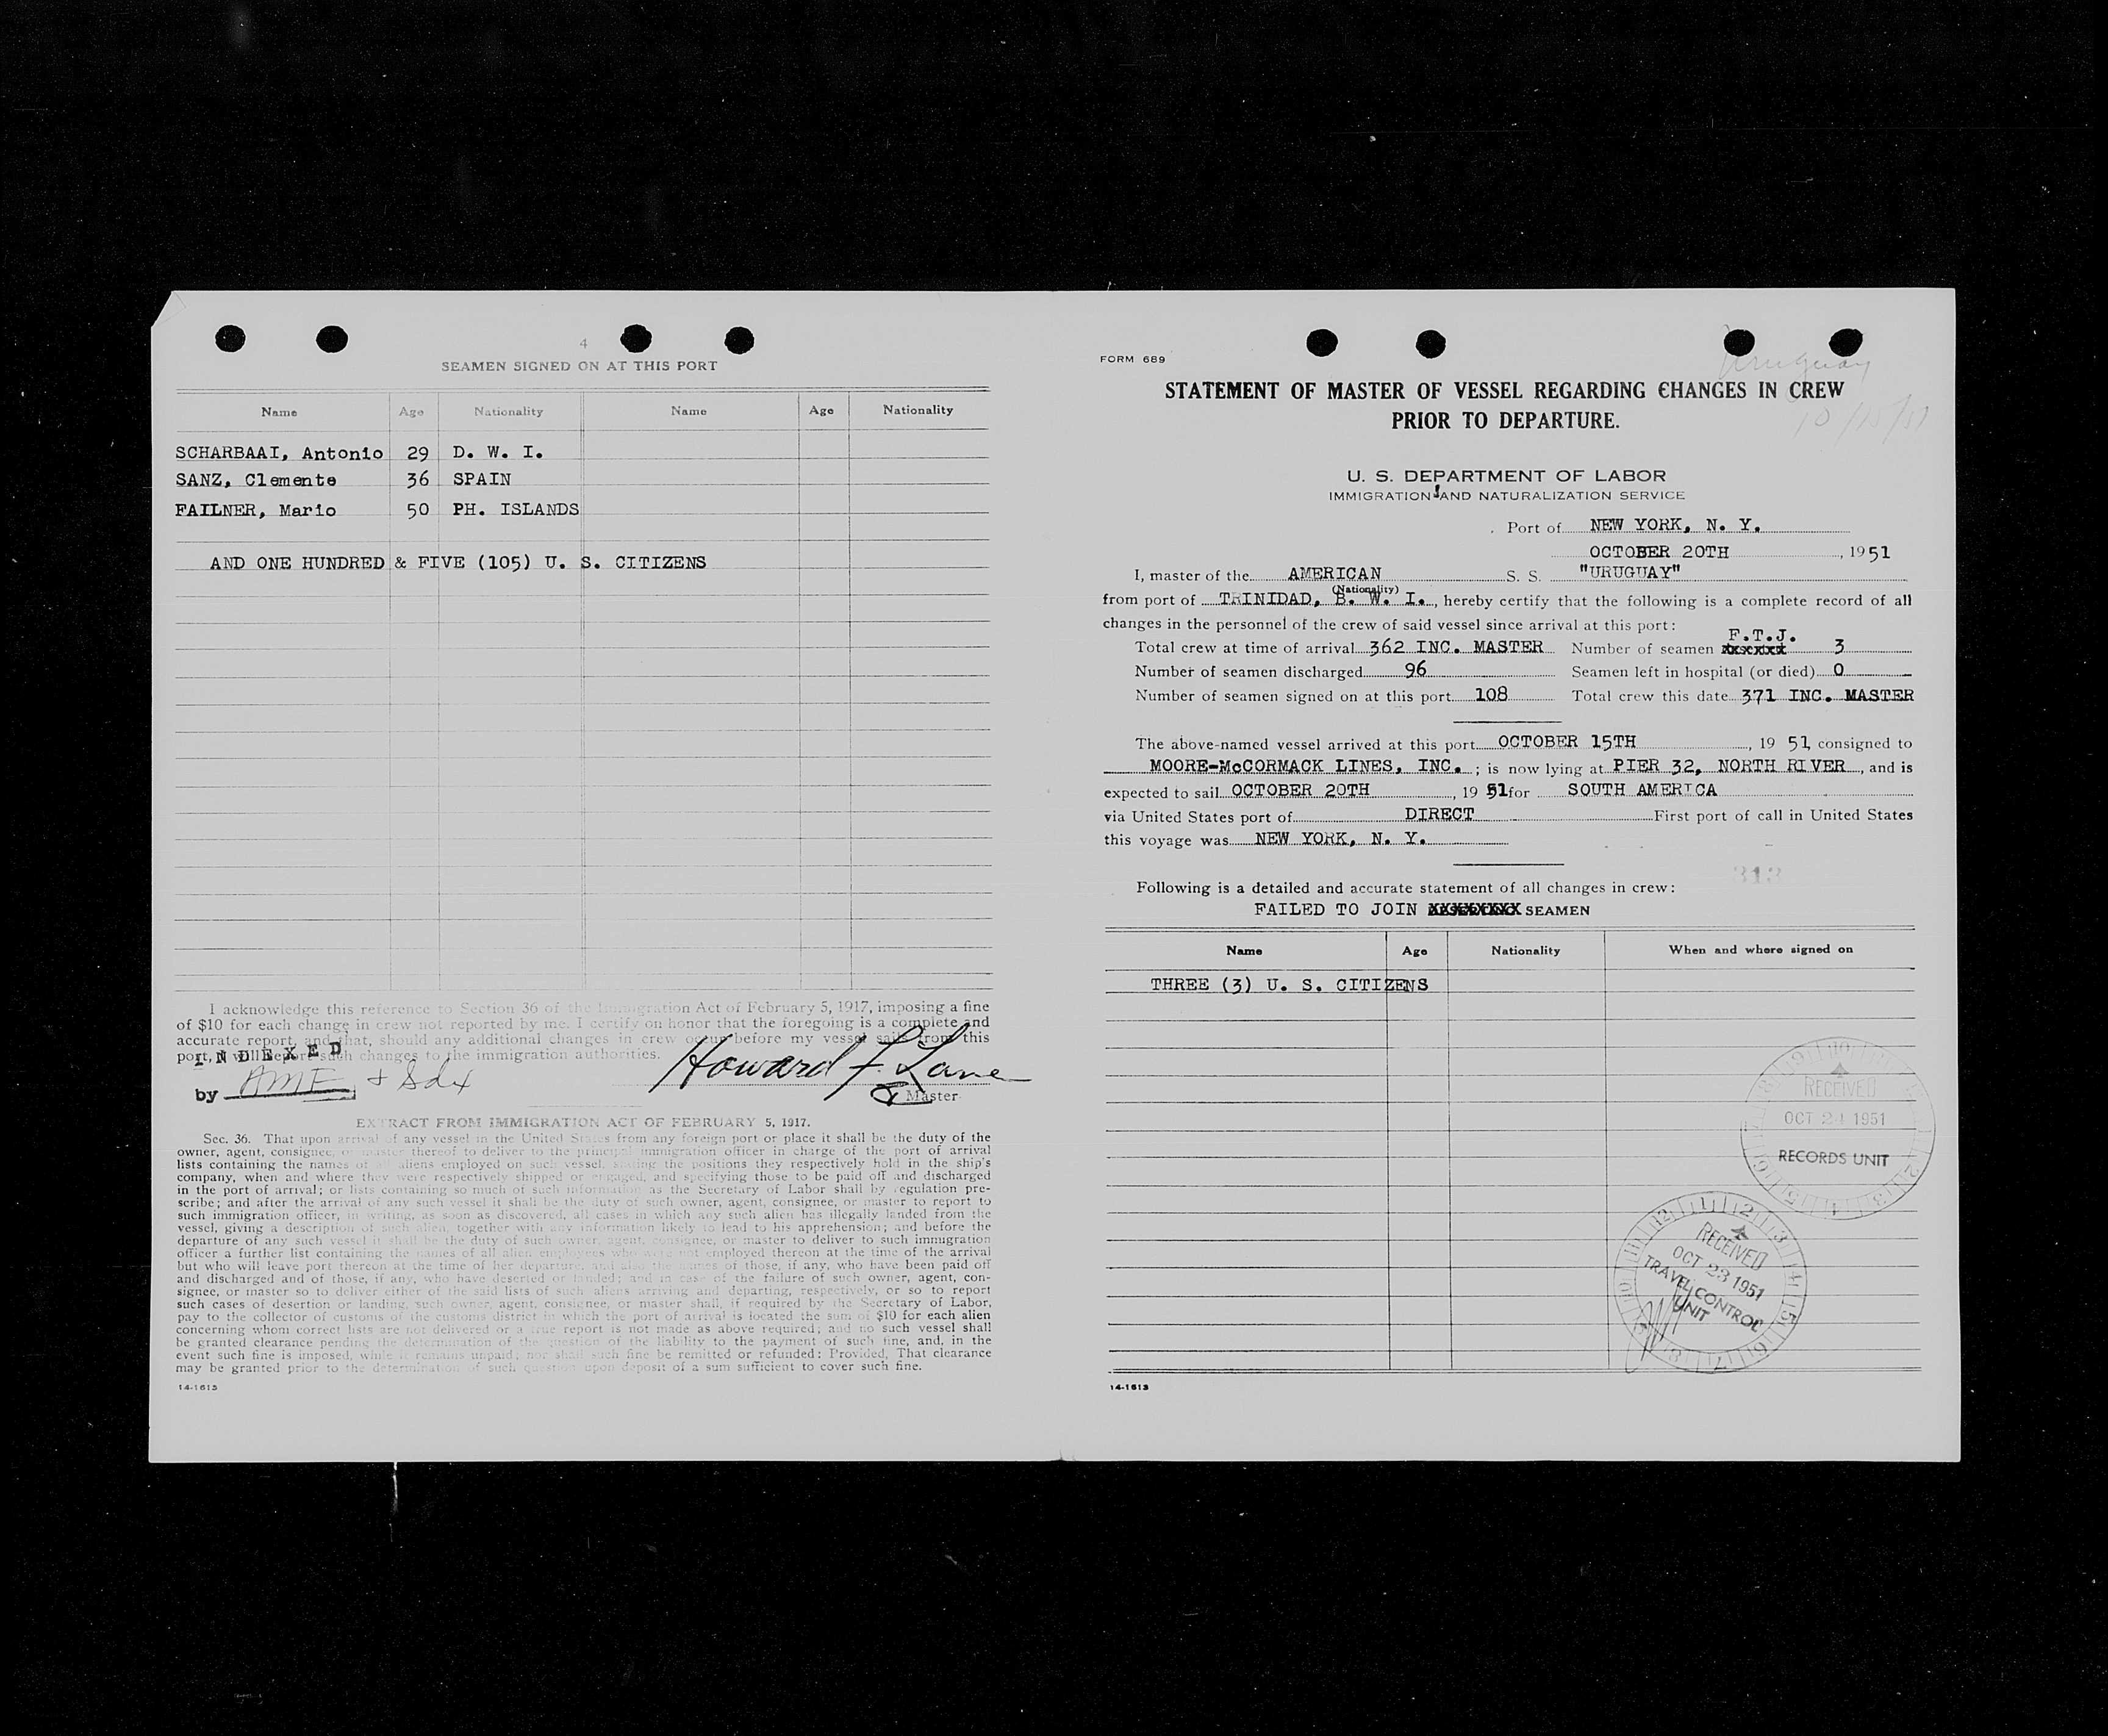 4
SEAMEN SIGNED ON AT THIS PORT
Name Age Nationality Name Age Nationality
SCHARBAAI, Antonio 29 D. W. I.
SANZ, Clemente 36 SPAIN
FAILNER, Mario 50 PH. ISLANDS
AND ONE HUNDRED & FIVE (105) U. S. CITIZENS
I acknowledge this reference to Section 36 of the Immigration Act of February 5, 1917, imposing a fine
of $10 for each change in crew not reported by me. I certify on honor that the foregoing is a complete and
accurate report, and that, should any additional changes in crew occur before my vessel sails from this
port, I will report such changes to the immigration authorities.
INDEXED
by AMF + Sdx
Howard F. Lane
Master
EXTRACT FROM IMMIGRATION ACT OF FEBRUARY 5, 1917.
Sec. 36. That upon arrival of any vessel in the United States from any foreign port or place it shall be the duty of the
owner, agent, consignee, or master thereof to deliver to the principal immigration officer in charge of the port of arrival
lists containing the names of all aliens employed on such vessel, stating the positions they respectively hold in the ship's
company, when and where they were respectively shipped or engaged, and specifying those to be paid off and discharged
in the port of arrival; or lists containing so much of such information as the Secretary of Labor shall by regulation pre-
scribe; and after the arrival of any such vessel it shall be the duty of such owner, agent, consignee, or master to report to
such immigration officer, in writing, as soon as discovered, all cases in which any such alien has illegally landed from the
vessel, giving a description of such alien, together with any information likely to lead to his apprehension; and before the
departure of any such vessel it shall be the duty of such owner, agent, consignee, or master to deliver to such immigration
officer a further list containing the names of all alien employees who were not employed thereon at the time of the arrival
but who will leave port thereon at the time of her departure, and also the names of those, if any, who have been paid off
and discharged and of those, if any, who have deserted or landed; and in case of the failure of such owner, agent, con-
signee, or master so to deliver either of the said lists of such aliens arriving and departing, respectively, or so to report
such cases of desertion or landing, such owner, agent, consignee, or master shall, if required by the Secretary of Labor,
pay to the collector of customs of the customs district in which the port of arrival is located the sum of $10 for each alien
concerning whom correct lists are not delivered or a true report is not made as above required; and no such vessel shall
be granted clearance pending the determination of the question of the liability to the payment of such fine, and, in the
event such fine is imposed, while it remains unpaid; nor shall such fine be remitted or refunded: Provided, That clearance
may be granted prior to the determination of such question upon deposit of a sum sufficient to cover such fine.
14-1613
Uruguay
10/15/51
FORM 689
STATEMENT OF MASTER OF VESSEL REGARDING CHANGES IN CREW
PRIOR TO DEPARTURE.
U. S. DEPARTMENT OF LABOR
IMMIGRATION AND NATURALIZATION SERVICE
Port of NEW YORK, N. Y.
OCTOBER 20TH, 1951
I, master of the AMERICAN S. S. "URUGUAY"
(Nationality)
from port of TRINIDAD, B. W. I., hereby certify that the following is a complete record of all
changes in the personnel of the crew of said vessel since arrival at this port:
Total crew at time of arrival 362 INC. MASTER Number of seamen F.T.J. 3
Number of seamen discharged 96 Seamen left in hospital (or died) 0
Number of seamen signed on at this port 108 Total crew this date 371 INC. MASTER
The above-named vessel arrived at this port OCTOBER 15TH, 19 51, consigned to
MOORE-McCORMACK LINES, INC.; is now lying at PIER 32, NORTH RIVER, and is
expected to sail OCTOBER 20TH, 19 51 for SOUTH AMERICA
via United States port of DIRECT First port of call in United States
this voyage was NEW YORK, N. Y.
313
Following is a detailed and accurate statement of all changes in crew:
FAILED TO JOIN XXXXXXXX SEAMEN
Name Age Nationality When and where signed on
THREE (3) U. S. CITIZENS
RECEIVED
OCT 24 1951
RECORDS UNIT
RECEIVED
OCT 23 1951
TRAVEL CONTROL
UNIT
14-1613